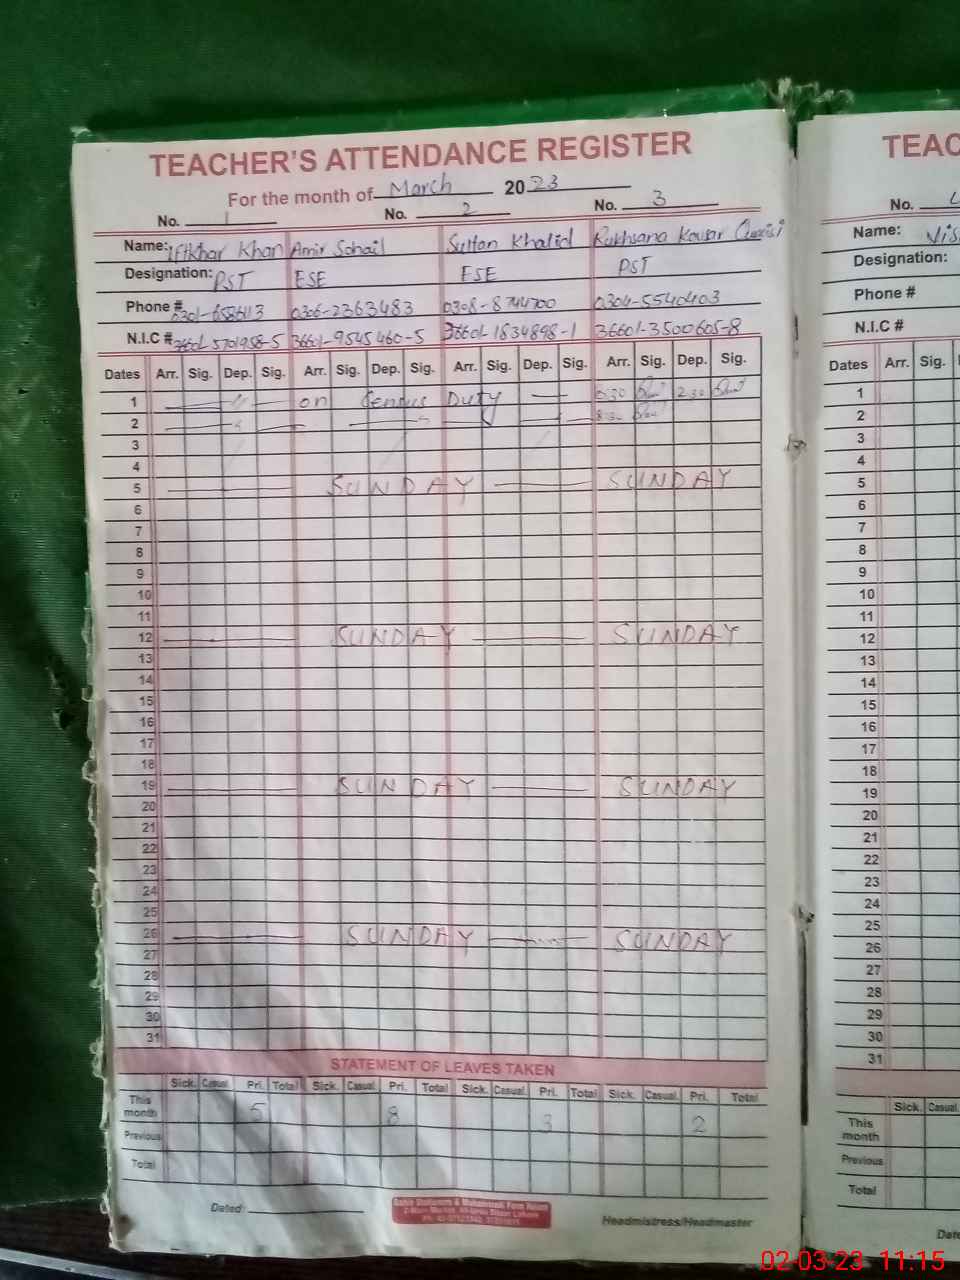 TEACHER'S ATTENDANCE REGISTER
For the month of March 2023
No. 1 No. 2 No. 3
Name: Iftikhar Khan Amir Sohail Sultan Khalid Rukhsana Kousar
Designation: PST ESE ESE PST
Phone # 0306-2363483 0308-8744700 0304-5540403
N.I.C # 36601-9545460-5 36601-1834898-1 36601-3500605-8
Dates Arr. Sig. Dep. Sig. Arr. Sig. Dep. Sig. Arr. Sig. Dep. Sig. Arr. Sig. Dep. Sig.
1 on Census Duty 8:30 2:30
2 8:30
3
4
5 SUNDAY SUNDAY
6
7
8
9
10
11
12 SUNDAY SUNDAY
13
14
15
16
17
18
19 SUNDAY SUNDAY
20
21
22
23
24
25
26 SUNDAY SUNDAY
27
28
29
30
31
STATEMENT OF LEAVES TAKEN
Sick. Casual. Pri. Total Sick. Casual. Pri. Total Sick. Casual. Pri. Total Sick. Casual. Pri. Total
This month 5 8 3 2
Previous
Total
Dated: Headmistress/Headmaster
TEAC
No.
Name:
Designation:
Phone #
N.I.C #
Dates Arr. Sig.
1
2
3
4
5
6
7
8
9
10
11
12
13
14
15
16
17
18
19
20
21
22
23
24
25
26
27
28
29
30
31
Sick. Casual
This month
Previous
Total
Date
02-03-23 11:15